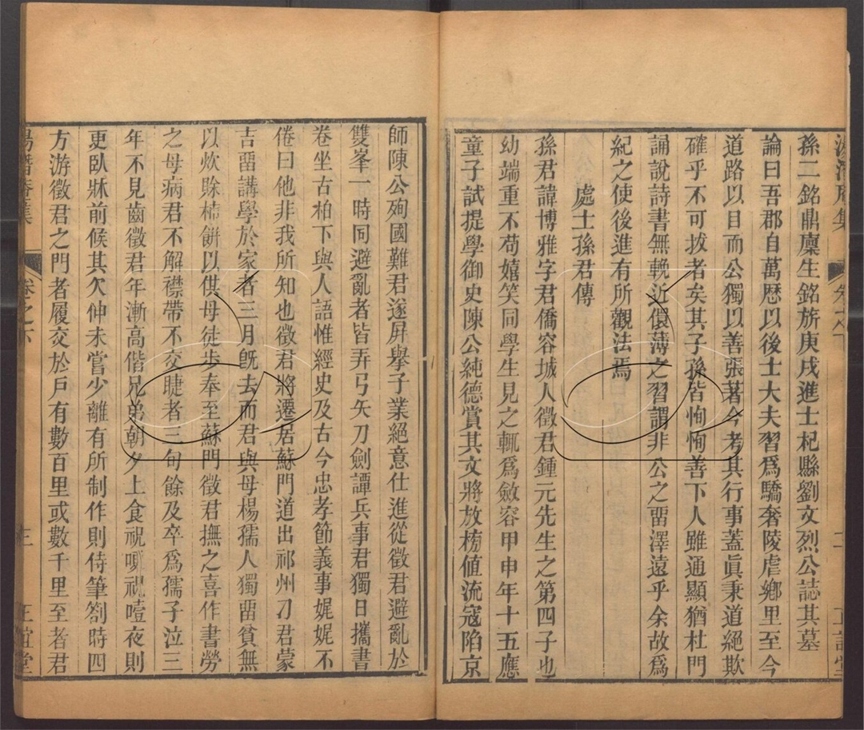 孫二銘鼎廩生銘旂庚戌進士杞縣劉文烈公誌其墓
論曰吾郡自萬歷以後士大夫習爲驕奢陵虐鄉里至今
道路以目而公獨以善張著今考其行事蓋眞秉道絕欺
確乎不可拔者矣其子孫皆恂恂善下人雖通顯猶杜門
誦說詩書無輓近儇薄之習謂非公之畱澤遠乎余故爲
紀之使後進有所觀法焉
處士孫君傳
孫君諱博雅字君僑容城人徵君鍾元先生之第四子也
幼端重不苟嬉笑同學生見之輒爲斂容甲申年十五應
童子試提學御史陳公純德賞其文將放榜値流寇陷京
師陳公殉國難君遂屛舉子業絕意仕進從徵君避亂於
雙峯一時同避亂者皆弄弓矢刀劍譚兵事君獨日攜書
卷坐古柏下與人語惟經史及古今忠孝節義事娓娓不
倦曰他非我所知也徵君將遷居蘇門道出祁州刁君蒙
吉畱講學於家者三月旣去而君與母楊孺人獨畱貧無
以炊賒柿餅以供母徒步奉至蘇門徵君撫之喜作書勞
之母病君不解襟帶不交睫者三旬餘及卒爲孺子泣三
年不見齒徵君年漸高偕兄弟朝夕上食視噯視噎夜則
更臥牀前候其欠伸未嘗少離有所制作則侍筆劄時四
方游徵君之門者履交於戶有數百里或數千里至者君
湯潛庵集
卷之下
三
正誼堂